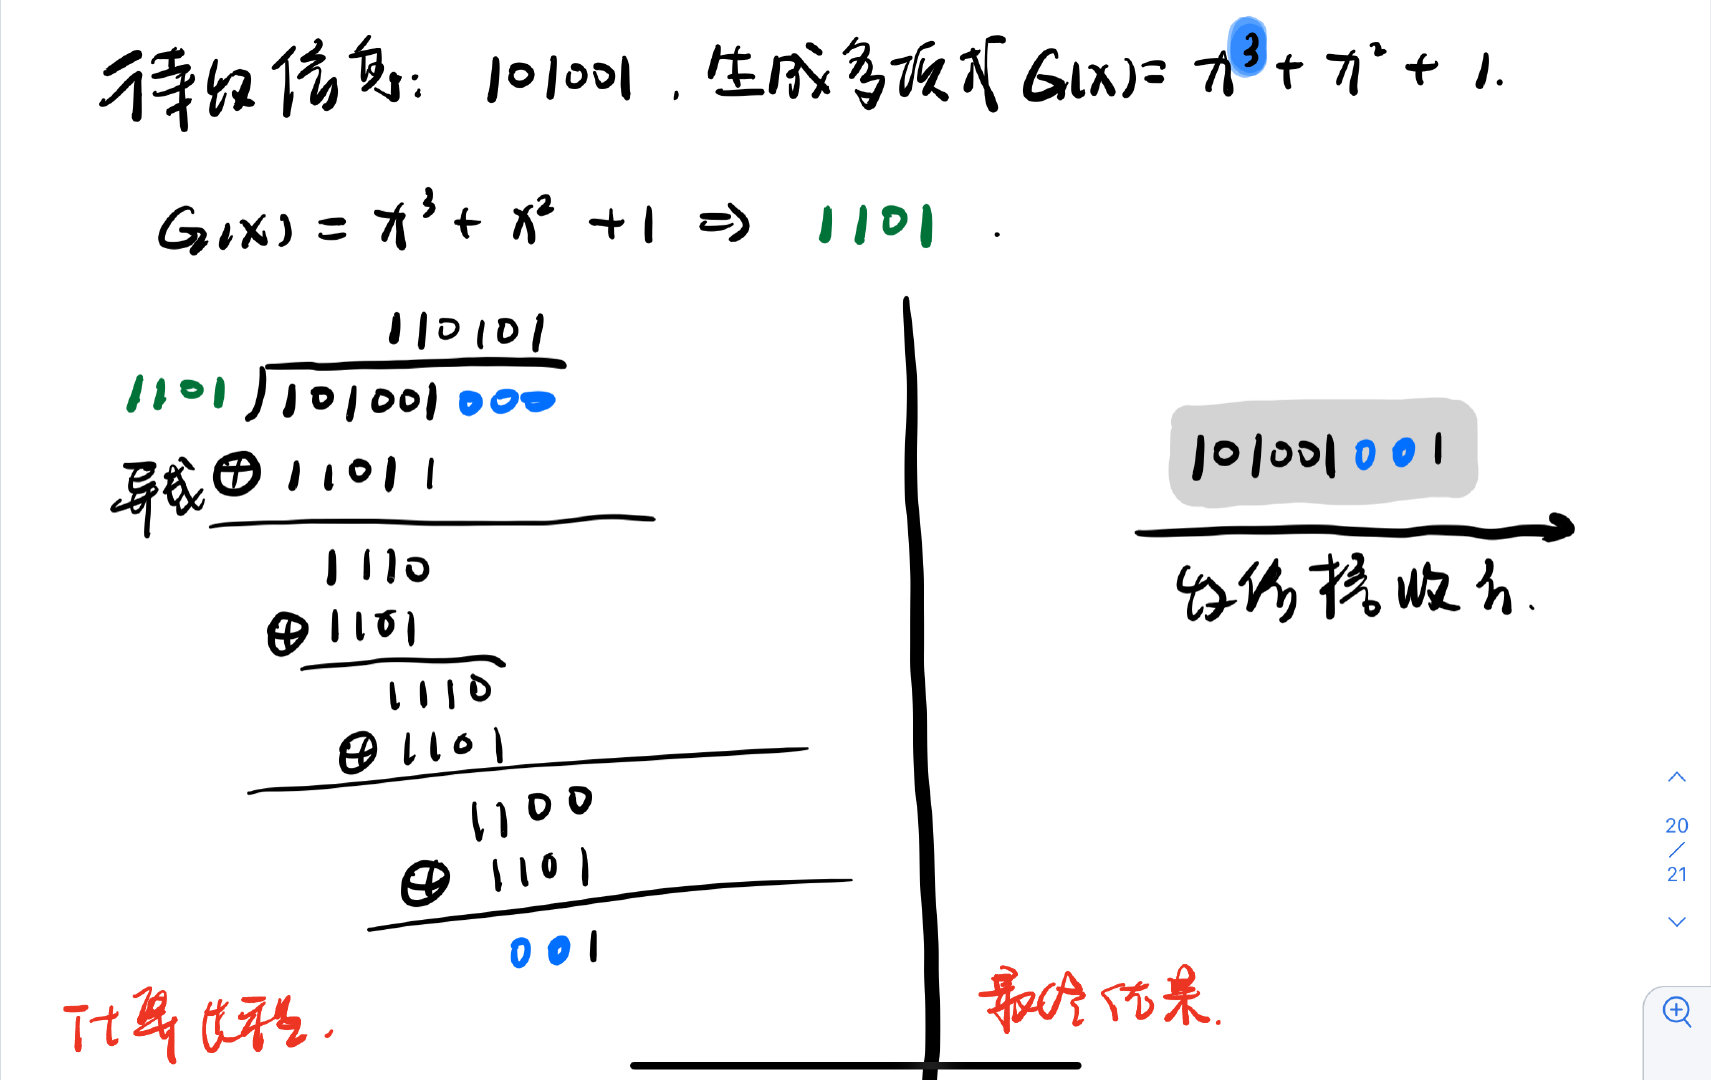 待发信息: 101001 . 生成多项式 G(x)= x³ + x² + 1.
G(x) = x³ + x² + 1 ⇒ 1101 .
110101
1101 ) 101001 000
异或 ⊕ 11011
1110
⊕ 1101
1110
⊕ 1101
1100
⊕ 1101
001
计算过程.
101001 001
发给接收方.
最终结果.
20
/
21